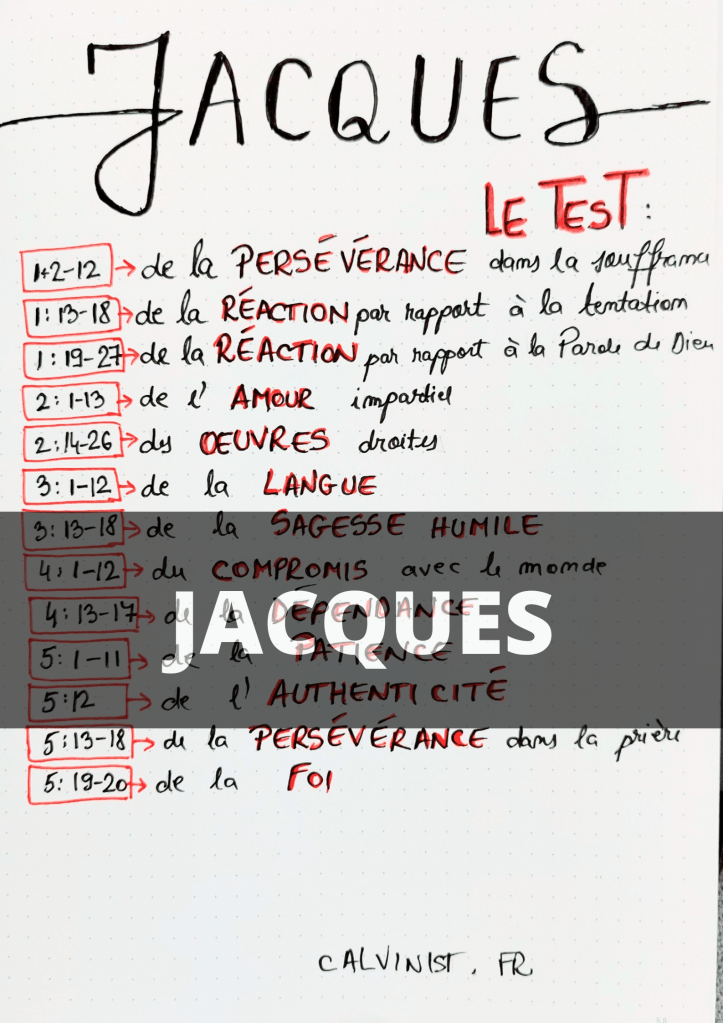 JACQUES
LE TEST:
1+2-12 → de la PERSÉVÉRANCE dans la souffrance
1:13-18 → de la RÉACTION par rapport à la tentation
1:19-27 → de la RÉACTION par rapport à la Parole de Dieu
2:1-13 → de l' AMOUR impartiel
2:14-26 → des OEUVRES droites
3:1-12 → de la LANGUE
3:13-18 → de la SAGESSE HUMILE
4:1-12 → du COMPROMIS avec le monde
4:13-17 → de la DÉPENDANCE
JACQUES
5:1-11 → de la PATIENCE
5:12 → de l' AUTHENTICITÉ
5:13-18 → de la PERSÉVÉRANCE dans la prière
5:19-20 → de la FOI
CALVINIST.FR